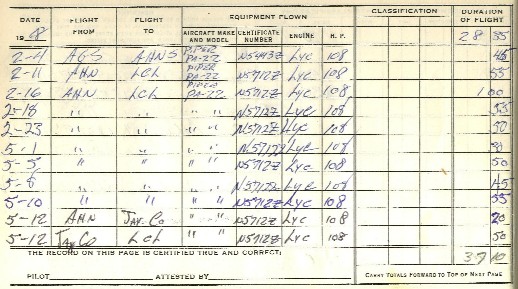 DATE FLIGHT FLIGHT EQUIPMENT FLOWN CLASSIFICATION DURATION OF FLIGHT
1968 FROM TO AIRCRAFT MAKE AND MODEL CERTIFICATE NUMBER ENGINE H. P. 28 35
2-4 AGS AHNS PIPER PA-22 N5443Z Lyc 108 45
2-11 AHN LCL PIPER PA-22 N5712Z Lyc 108 55
2-16 AHN LCL PIPER PA-22 N5712Z Lyc 108 1 00
2-18 " " " " N5712Z Lyc 108 55
2-23 " " " " N5712Z Lyc 108 50
5-1 " " " " N5712Z Lyc 108
5-5 " " " " N5712Z Lyc 108 50
5-6 " " " " N5712Z Lyc 108 45
5-10 " " " " N5712Z Lyc 108 55
5-12 AHN Jay.Co " " N5712Z Lyc 108 20
5-12 Jay Co LCL " " N5712Z Lyc 108 50
THE RECORD ON THIS PAGE IS CERTIFIED TRUE AND CORRECT: 37 10
PILOT ATTESTED BY CARRY TOTALS FORWARD TO TOP OF NEXT PAGE